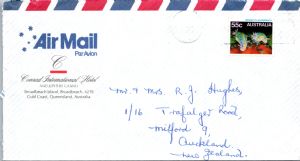 Air Mail
Par Avion
C
Conrad International Hotel
AND JUPITERS CASINO
Broadbeach Island, Broadbeach, 4218
Gold Coast, Queensland, Australia
55c
AUSTRALIA
Mr & Mrs. R. J. Hughes,
1/16 Trafalgar Road,
Milford 9,
Auckland.
New Zealand.